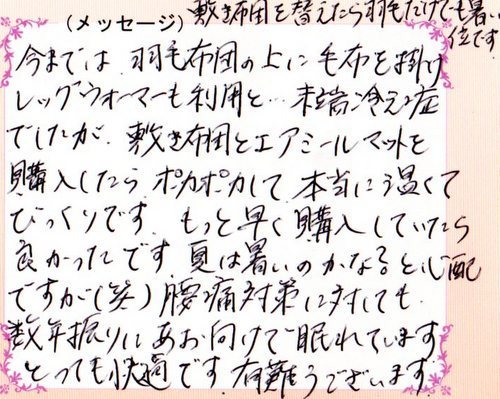 (メッセージ)
敷き布団を替えたら羽毛だけでも暑い
位です
今までは 羽毛布団の上に毛布を掛け
レッグウォーマーも利用と… 末端冷え症
でしたが、敷き布団とエアミールマットを
購入したら ポカポカして 本当に温くて
びっくりです。もっと早く購入していたら
良かったです 夏は暑いのかな?と心配
ですが(笑) 腰痛対策に対しても、
数年振りにあお向けで眠れています
とっても快適です。有難うございます。